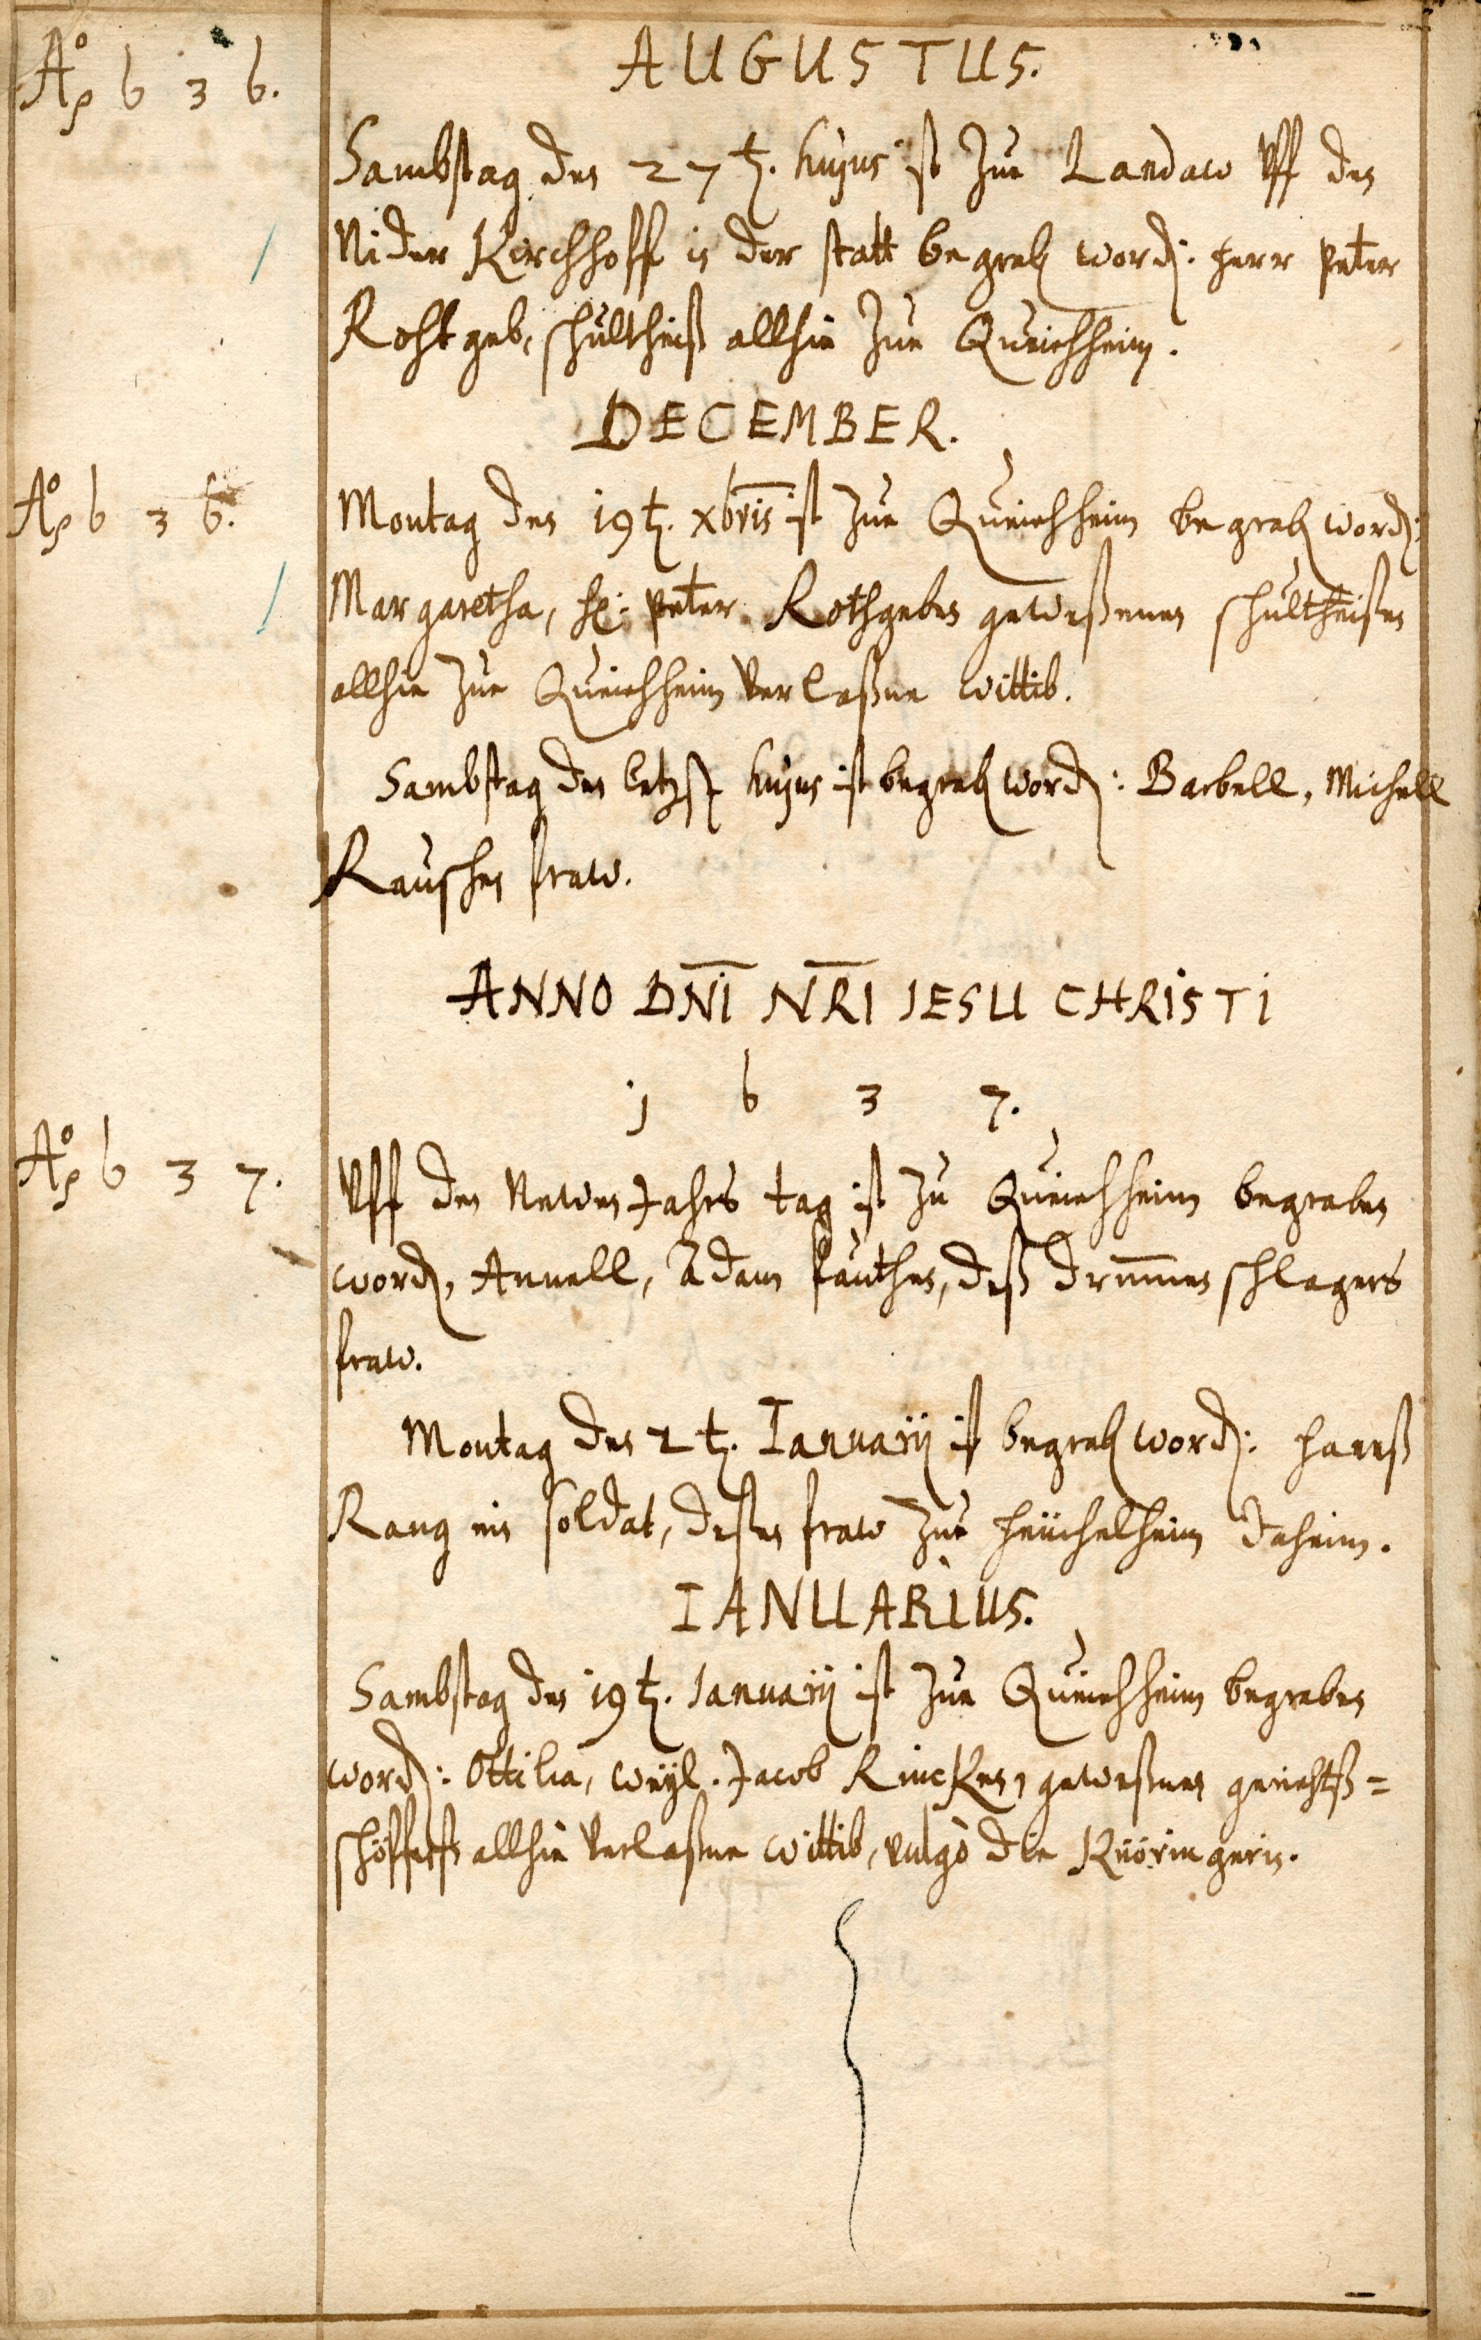 Aō 636.
AUGUSTUS.
Sambstag den 27t. hujus ist Zue Landaw Vff den
Nider Kirchhoff in der statt begrab word: Herr Peter
Rohtgeb, schultheiß allhie Zue Queichheim.
DECEMBER.
Aō 636.
Montag den 19t. xbris ist Zue Queichheim begrab word:
Margaretha, H: Peter Rothgeben geweßenen schultheißen
allhie Zue Queichheim Verlaßne wittib.
Sambstag den letzst hujus ist begrab word: Barbell, Michell
Rauschen fraw.
ANNO DNI NRI IESU CHRISTI
1637.
Aō 637.
Vff den Newen Jahrs tag ist Zu Queichheim begraben
word, Annell, Adam fauthen, deß Drummenschlagers
fraw.
Montag den 2t. Ianuarij ist begrab word: Hanß
Rang ein Soldat, deßen fraw Zue Heüchelheim daheim.
IANUARIUS.
Sambstag den 19t. Ianuarij ist Zue Queichheim begraben
word: Ottilia, weyl. Jacob Rincken, geweßnen gerichtß=
schöffenß allhie Verlaßne wittib, vulgò die Knöringerin.